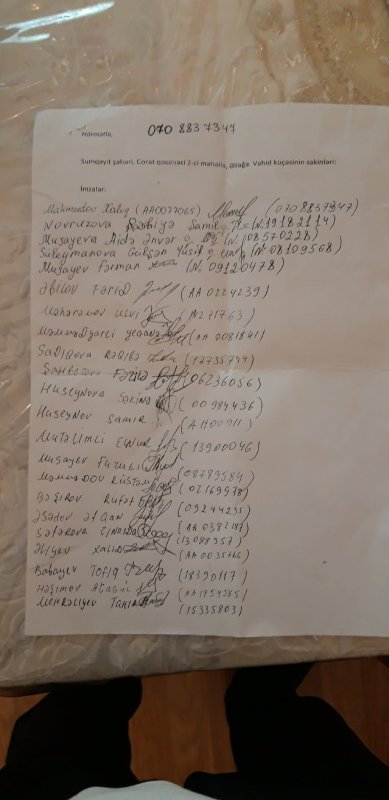 070 883 7347
Hörmətlə,
Sumqayıt şəhəri, Corat qəsəbəsi 2-ci məhəllə, Ələğa Vahid küçəsinin sakinləri:
İmzalar:
Mahmudov Xaliq (AA0077065) (070 8837347)
Novruzova Rəbiyə Samil (№19182114)
Musayeva Aidə Ənvər q (№ 08570228)
Süleymanova Gülşən Yusif q (№ 08109568)
Musayev Fərman (№ 09120478)
Əbilov Fərid (AA 0224239)
Məhərəmov Ulvi (N271763)
Məmmədqərci Yeganə (AA 0081841)
Sadiqova Rəqibə (17735744)
Fəzilə (06236056)
Huseynova Səkinə (00984436)
Huseynov Samir (A1100911)
Mutəlimli Elnur (13900046)
Musayev Fuzuli (08789584)
Məmmədov Rüstəm (02169978)
Bəşirov Rufət (09244235)
Əsədov Əfqan (AA 0382187)
Səfərova (13088957)
Əliyev Xalid (AA 0035766)
Babayev Tofiq (18390117)
Həşimov (AA1754585)
Mehrəliyev (15335803)